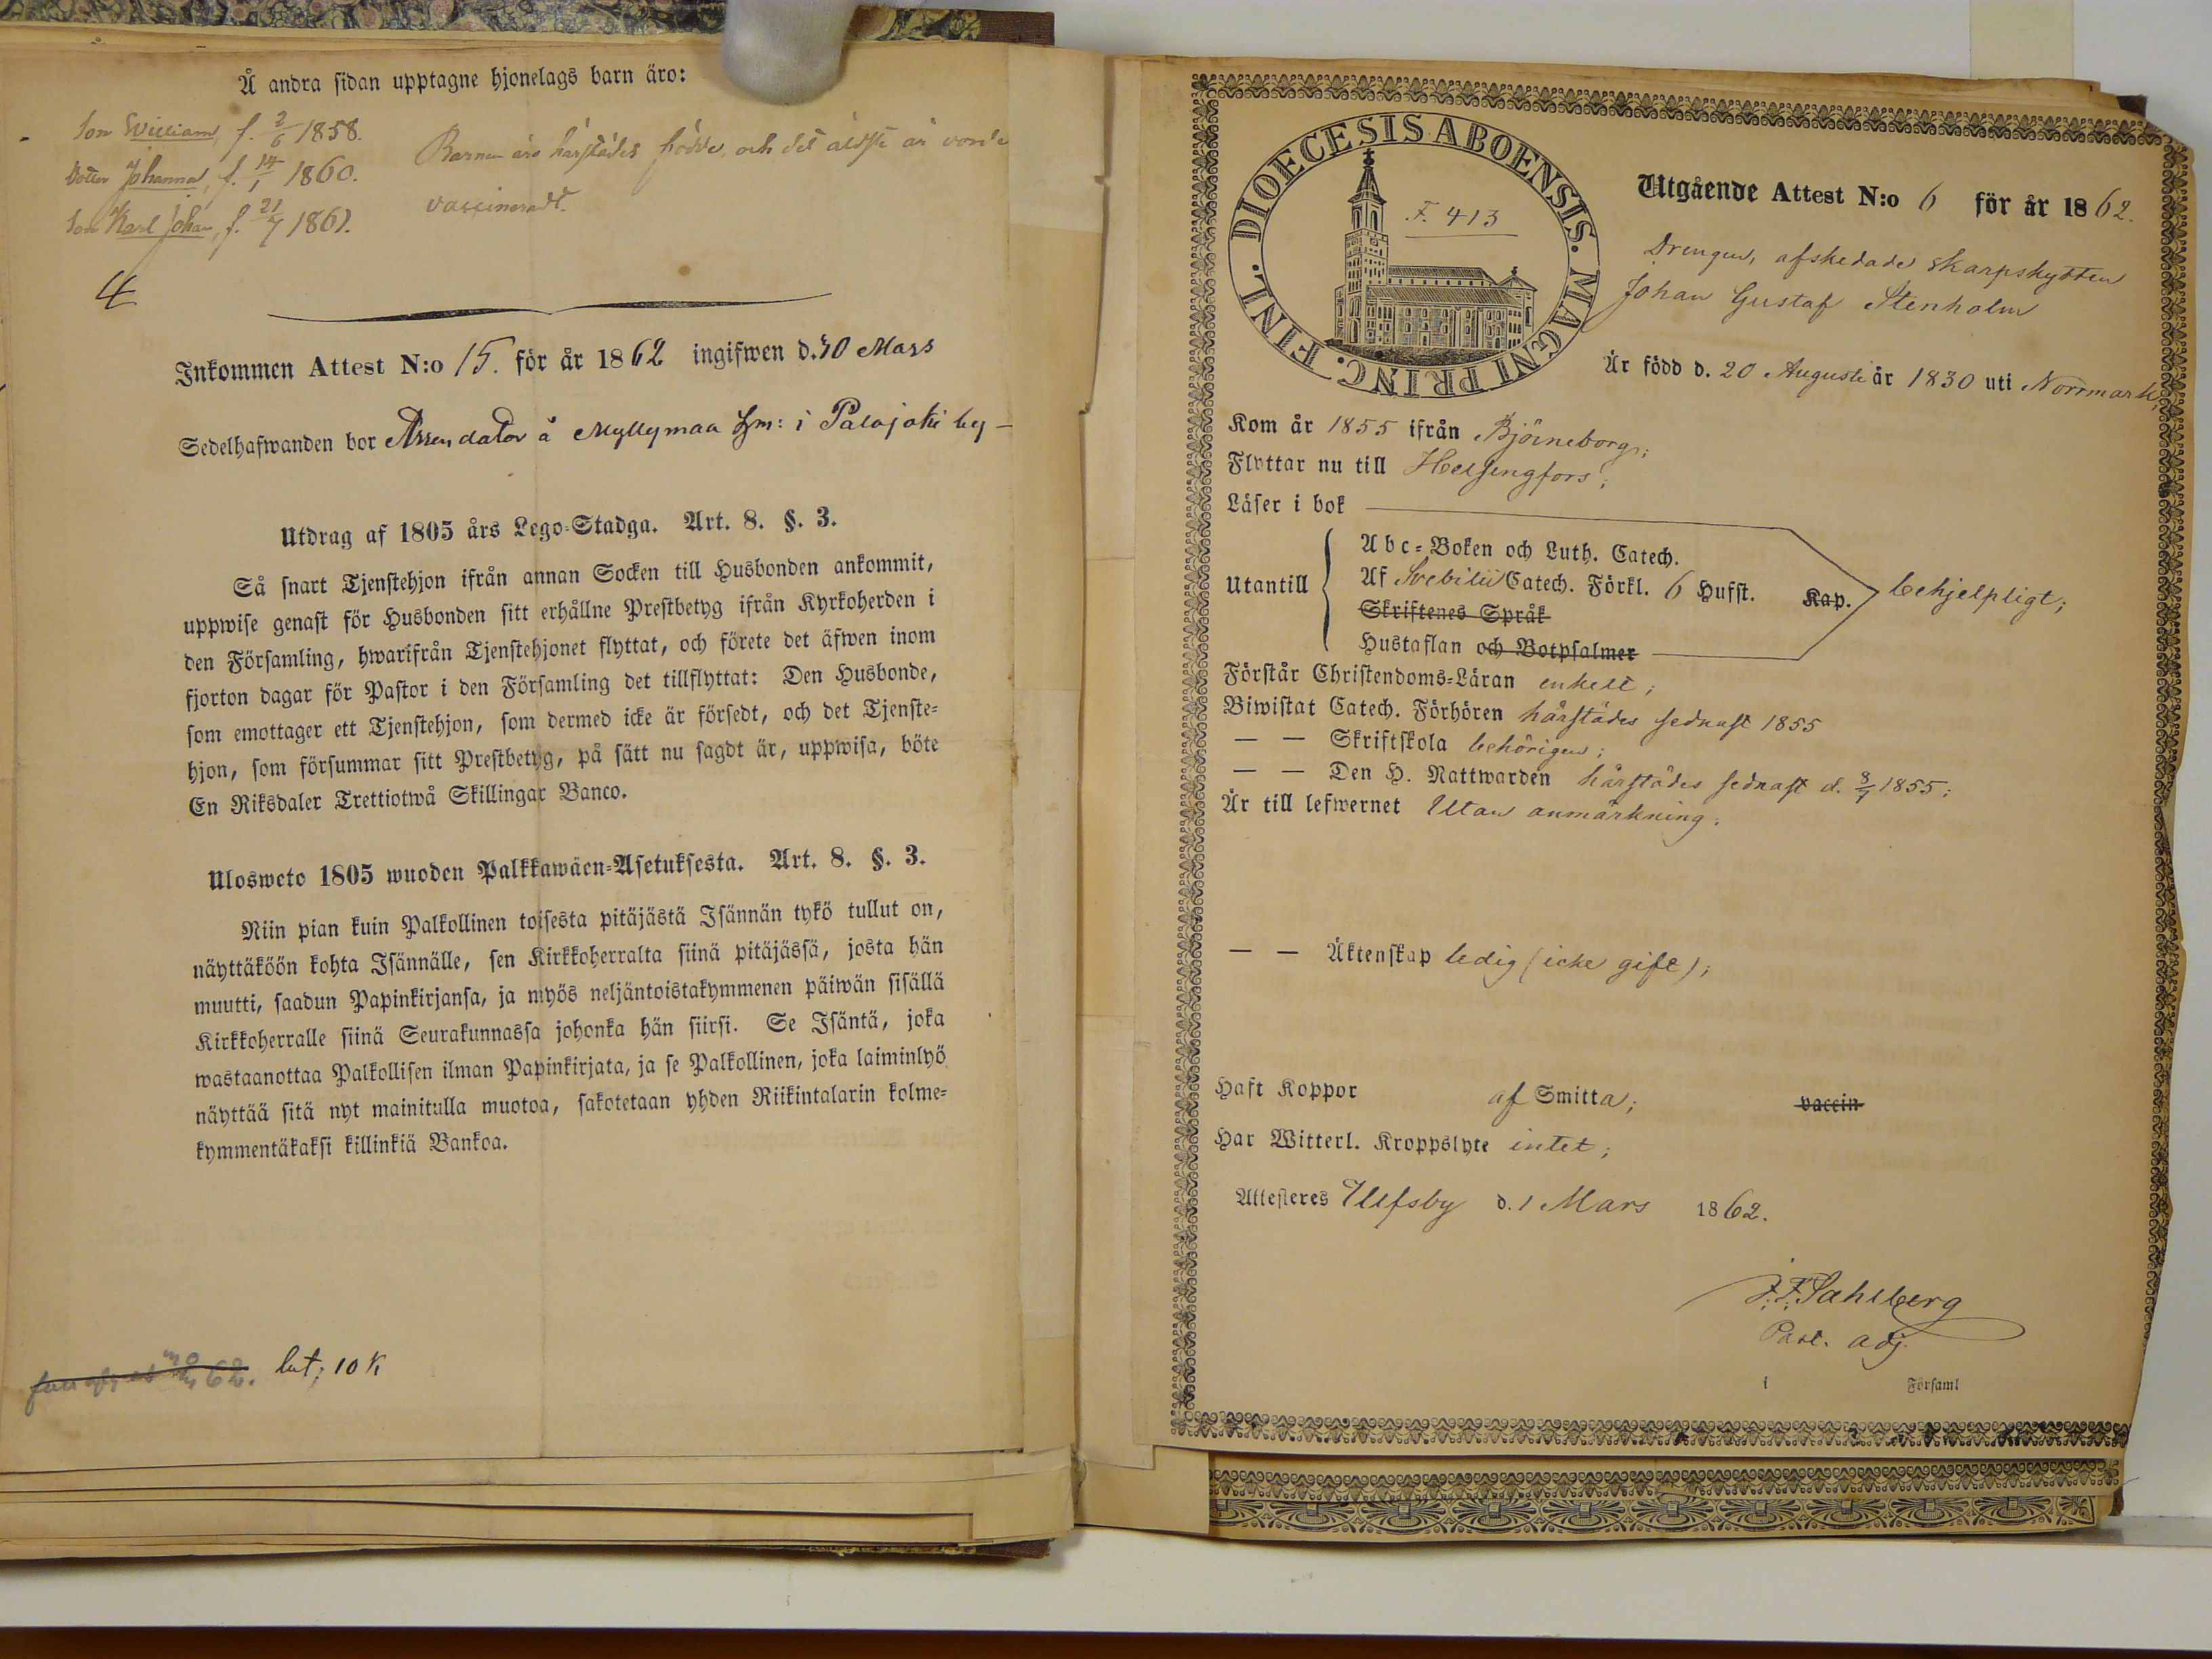 Å andra sidan upptagne hjonelags barn äro:
Son William, f. 2/6 1858.
Dotter Johanna, f. 14/1 1860.
Son Karl Johan, f. 21/7 1861.
Barnen äro härstädes födde, och det äldste är
vaccineradt.
4
Inkommen Attest N:o 15. för år 1862 ingifwen d. 30 Mars
Sedelhafwanden bor Arrendator å Myllymaa hm: i Palojoki by
Utdrag af 1805 års Lego-Stadga. Art. 8. §. 3.
Så snart Tjenstehjon ifrån annan Socken till Husbonden ankommit,
uppwise genast för Husbonden sitt erhållne Prestbetyg ifrån Kyrkoherden i
den Församling, hwarifrån Tjenstehjonet flyttat, och förete det äfwen inom
fjorton dagar för Pastor i den Församling det tillflyttat: Den Husbonde,
som emottager ett Tjenstehjon, som dermed icke är försedt, och det Tjenste-
hjon, som försummar sitt Prestbetyg, på sätt nu sagdt är, uppwisa, böte
En Riksdaler Trettiotwå Skillingar Banco.
Ulosweto 1805 wuoden Palkkawäen-Asetuksesta. Art. 8. §. 3.
Niin pian kuin Palkollinen toisesta pitäjästä Isännän tykö tullut on,
näyttäköön kohta Isännälle, sen Kirkkoherralta siinä pitäjässä, josta hän
muutti, saadun Papinkirjansa, ja myös neljäntoistakymmenen päiwän sisällä
Kirkkoherralle siinä Seurakunnassa johonka hän siirsi. Se Isäntä, joka
wastaanottaa Palkollisen ilman Papinkirjata, ja se Palkollinen, joka laiminlyö
näyttää sitä nyt mainitulla muotoa, sakotetaan yhden Riikintalarin kolme-
kymmentäkaksi killinkiä Bankoa.
62. lut; 10 K
DIOECESIS ABOENSIS. MAGNI PRINC. FINL.
F. 413
Utgående Attest N:o 6 för år 1862.
Drengen, afskedade skarpskytten
Johan Gustaf Stenholm
Är född d. 20 Augusti år 1830 uti Norrmark,
Kom år 1855 ifrån Björneborg;
Flyttar nu till Helsingfors;
Läser i bok
Utantill
Abc-Boken och Luth. Catech.
Af Svebilii Catech. Förkl. 6 Hufst. Kap. behjelpligt;
Skriftenes Språk
Hustaflan och Botpsalmer
Förstår Christendoms-Läran enkelt;
Biwistat Catech. Förhören härstädes sednast 1855
— — Skriftskola behörigen;
— — Den H. Nattwarden härstädes sednast d. 8/7 1855;
Är till lefwernet Utan anmärkning.
— — Äktenskap ledig (icke gift);
Haft Koppor af Smitta; vaccin
Har Witterl. Kroppslyte intet;
Attesteres Ulfsby d. 1 Mars 1862.
J. F. Sahlberg
Past. adj.
i Församl